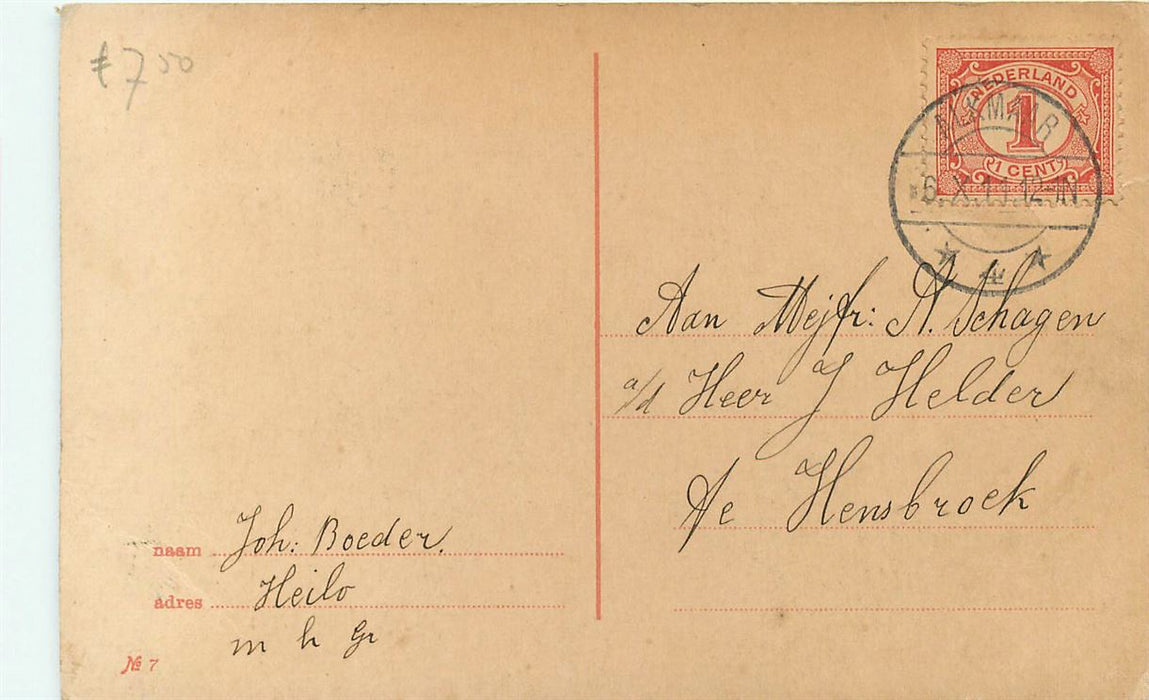 € 7 50
NEDERLAND
1
1 CENT
ALKMAAR
6.X.11.12-1N
4
Aan Mejfr: A. Schagen
a/d Heer J Helder
te Hensbroek
naam Joh: Boeder.
adres Heilo
m h Gr
№ 7